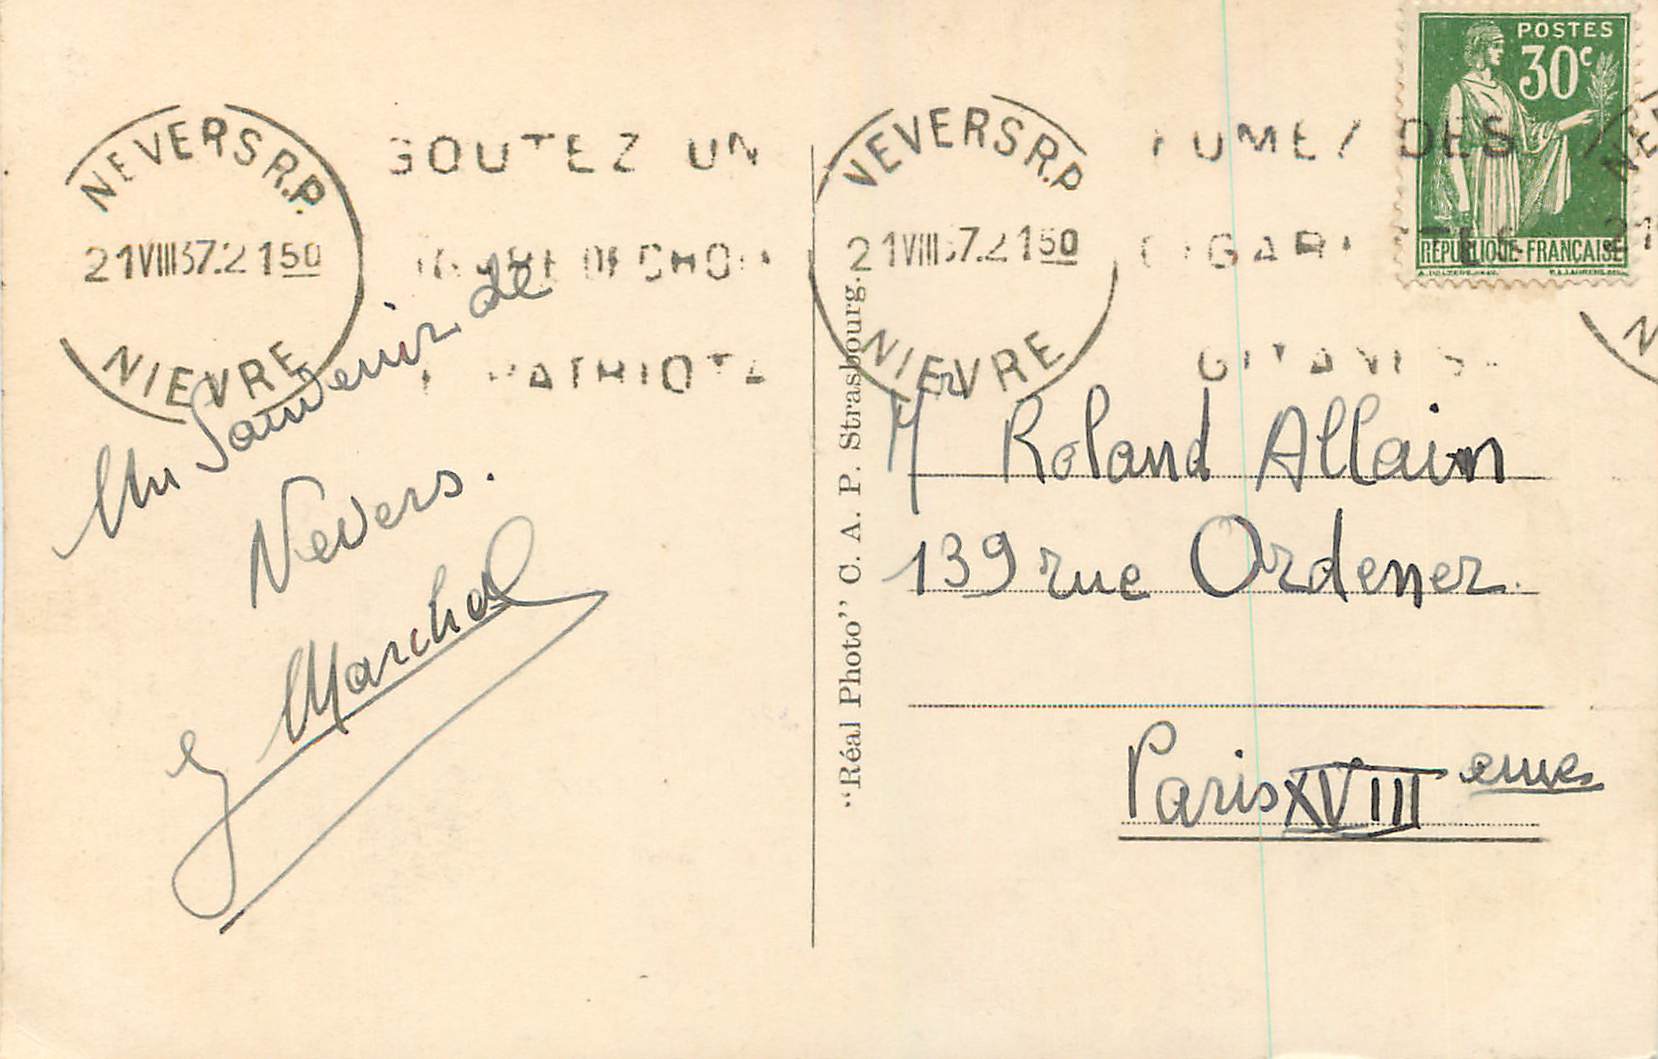 NEVERS R.P.
21VIII37.2150
NIEVRE
GOUTEZ UN
DE CHOIX
PATRIOTA
NEVERS R.P.
21VIII37.2150
NIEVRE
FUMEZ DES
CIGARETTES
GITANES
POSTES
30c
REPUBLIQUE FRANÇAISE
NE
21
N
Un Souvenir de
Nevers.
J Marchal
"Réal Photo" C. A. P. Strasbourg.
Mr Roland Allain
139 rue Ordener.
Paris XVIII eme